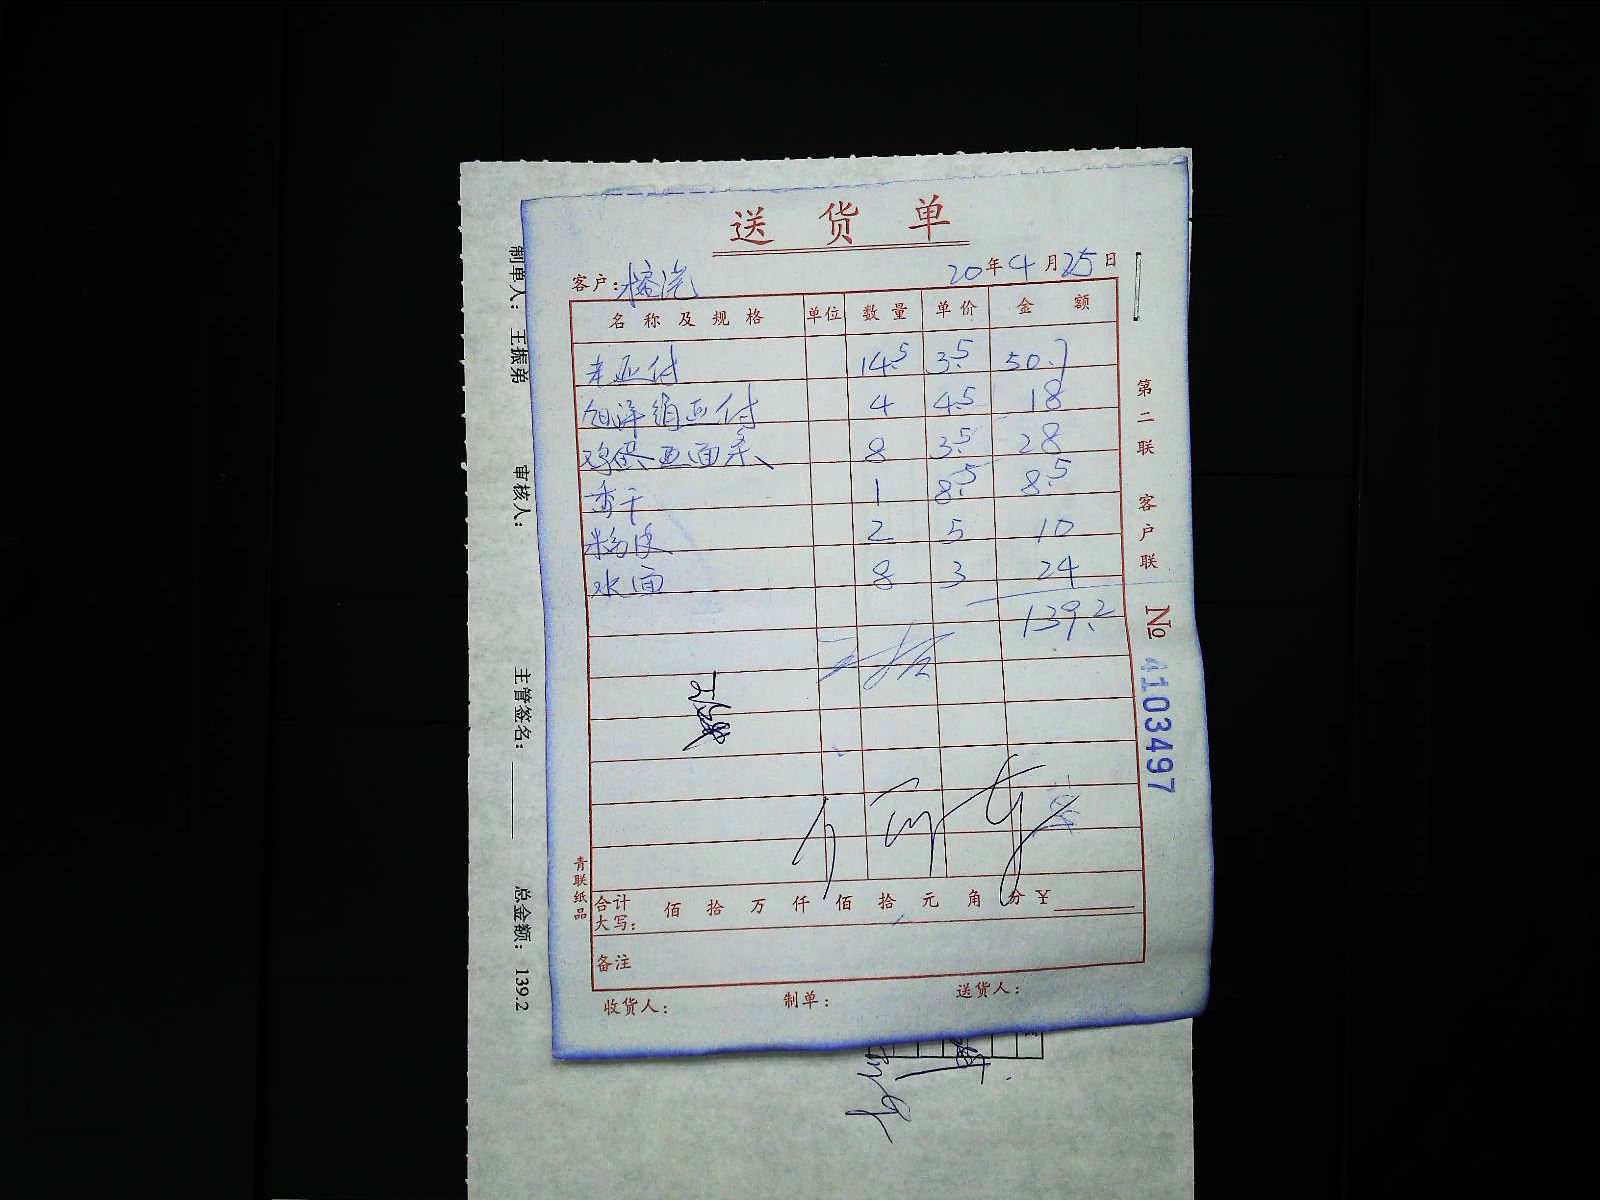 送货单
客户: 榕汽 20年4月25日
名称及规格 单位 数量 单价 金额
14.5 3.5 50.7
4 4.5 18
8 3.5 28
香干 1 8.5 8.5
粉皮 2 5 10
水面 8 3 24
139.2
合计大写: 佰 拾 万 仟 佰 拾 元 角 分 ¥
备注
收货人: 制单: 送货人:
青联纸品
第二联 客户联
№ 4103497
制单人: 王振弟 审核人: 主管签名: 总金额: 139.2